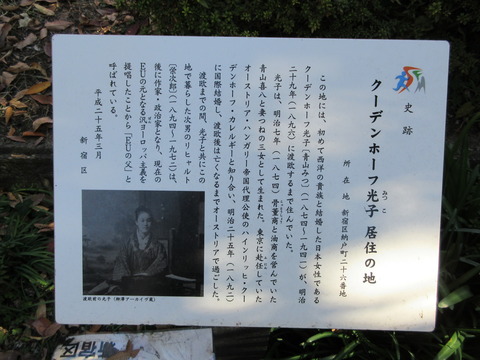 史跡
クーデンホーフ光子 居住の地
みつこ
所在地 新宿区納戸町二十六番地
この地には、初めて西洋の貴族と結婚した日本女性である
クーデンホーフ光子［青山みつ］（一八七四～一九四一）が、明治
二十九年（一八九六）に渡欧するまで住んでいた。
光子は、明治七年（一八七四）骨董商と油商を営んでいた
青山喜八と妻つねの三女として生まれた。東京に赴任していた
オーストリア・ハンガリー帝国代理公使のハインリッヒ・クー
デンホーフ・カレルギーと知り合い、明治二十五年（一八九二）
に国際結婚し、渡欧後は亡くなるまでオーストリアで過ごした。
渡欧までの間、光子と共にこの
地で暮らした次男のリヒャルト
［栄次郎］（一八九四～一九七二）は、
後に作家・政治家となり、現在の
EUの元となる汎ヨーロッパ主義を
提唱したことから「EUの父」と
呼ばれている。
平成二十五年三月
新宿区
渡欧前の光子（柳澤アーカイブ蔵）
新宿区